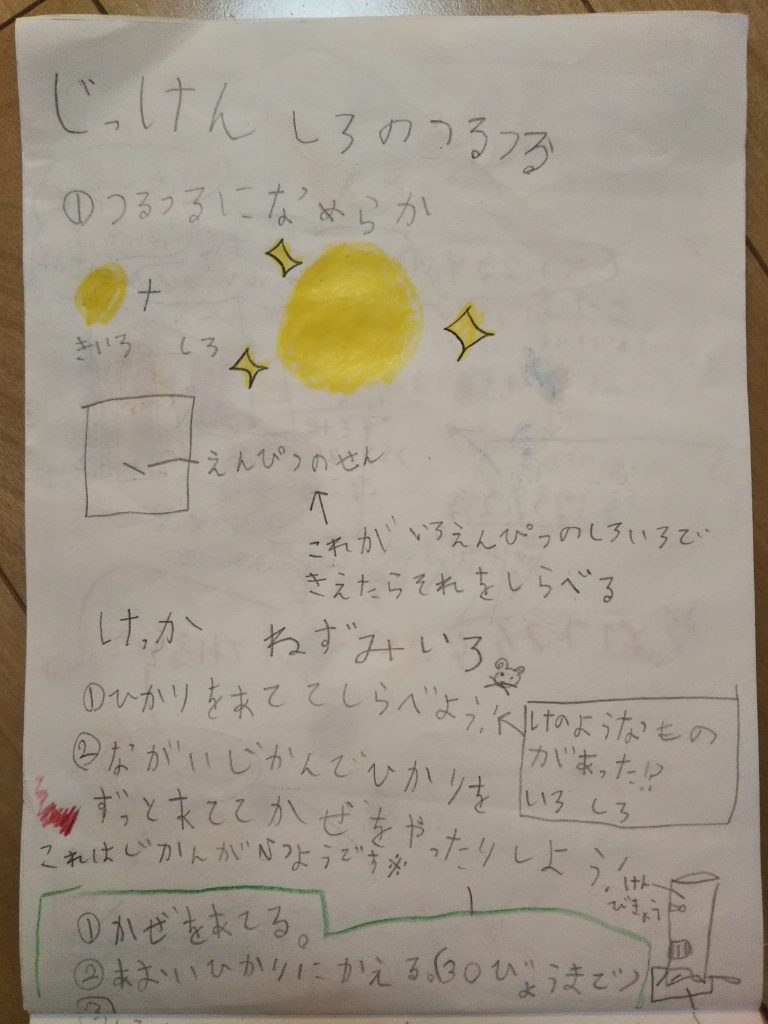 じっけん しろのつるつる
①つるつるになめらか
+
きいろ しろ
えんぴつのせん
↑
これが いろえんぴつのしろいろで
きえたらそれをしらべる
けっか ねずみいろ
①ひかりをあててしらべよう!
けのようなもの
があった!?
いろ しろ
②ながいじかんでひかりを
ずっとあててかぜをやったりしよう!
これはじかんがいつようです※
けん
びきょう
①かぜをあてる。
②あおいひかりにかえる。(30びょうまで)
③